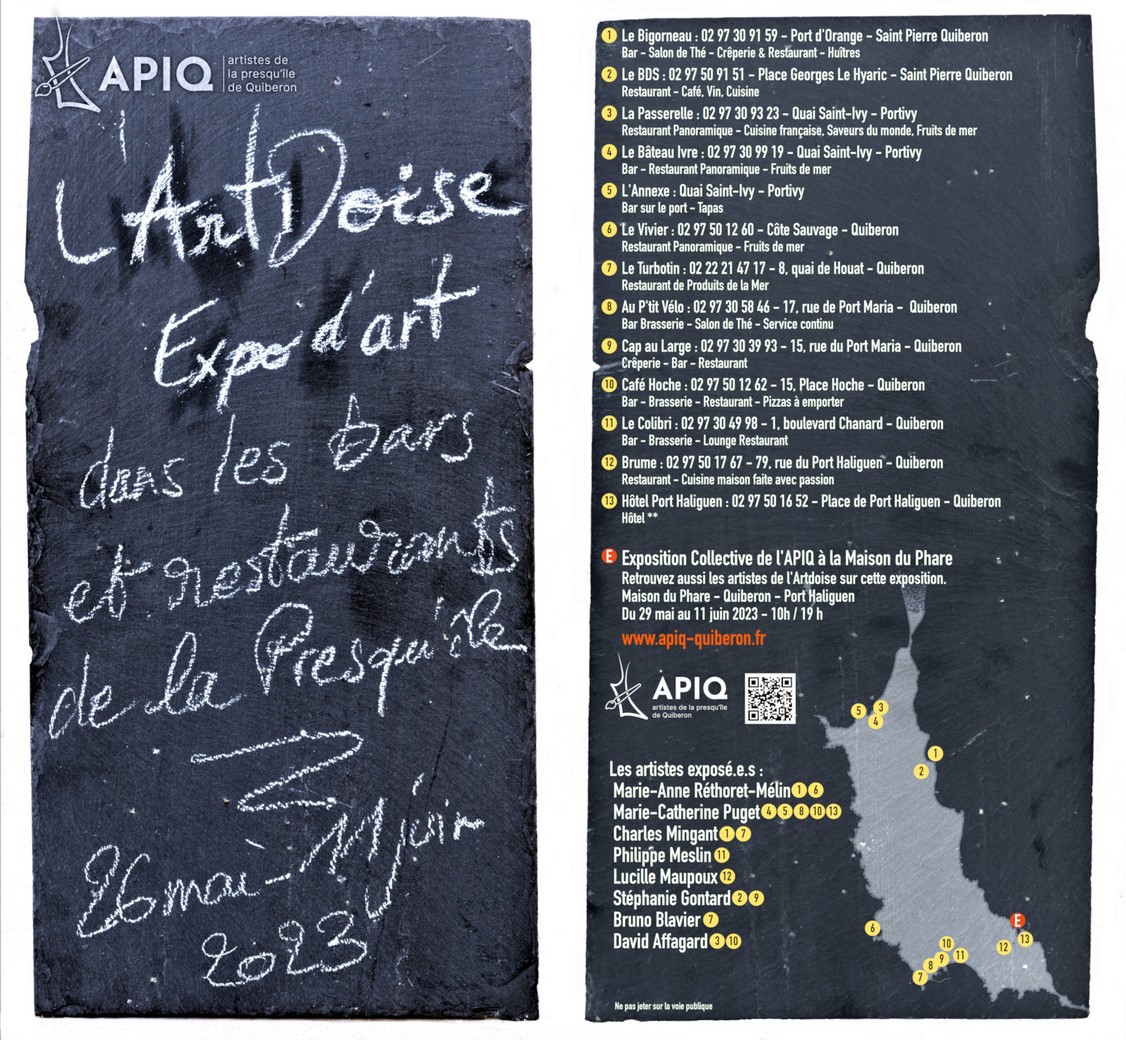 APIQ
artistes de
la presqu'île
de Quiberon
L'ArtDoise
Expo d'art
dans les bars
et restaurants
de la Presqu'île
26 mai - 11 juin
2023
1 Le Bigorneau : 02 97 30 91 59 – Port d'Orange – Saint Pierre Quiberon
Bar – Salon de Thé – Crêperie & Restaurant – Huîtres
2 Le BDS : 02 97 50 91 51 – Place Georges Le Hyaric – Saint Pierre Quiberon
Restaurant – Café, Vin, Cuisine
3 La Passerelle : 02 97 30 93 23 – Quai Saint-Ivy – Portivy
Restaurant Panoramique – Cuisine française, Saveurs du monde, Fruits de mer
4 Le Bâteau Ivre : 02 97 30 99 19 – Quai Saint-Ivy – Portivy
Bar – Restaurant Panoramique – Fruits de mer
5 L'Annexe : Quai Saint-Ivy – Portivy
Bar sur le port – Tapas
6 Le Vivier : 02 97 50 12 60 – Côte Sauvage – Quiberon
Restaurant Panoramique – Fruits de mer
7 Le Turbotin : 02 22 21 47 17 – 8, quai de Houat – Quiberon
Restaurant de Produits de la Mer
8 Au P'tit Vélo : 02 97 30 58 46 – 17, rue de Port Maria – Quiberon
Bar Brasserie – Salon de Thé – Service continu
9 Cap au Large : 02 97 30 39 93 – 15, rue du Port Maria – Quiberon
Crêperie – Bar – Restaurant
10 Café Hoche : 02 97 50 12 62 – 15, Place Hoche – Quiberon
Bar – Brasserie – Restaurant – Pizzas à emporter
11 Le Colibri : 02 97 30 49 98 – 1, boulevard Chanard – Quiberon
Bar – Brasserie – Lounge Restaurant
12 Brume : 02 97 50 17 67 – 79, rue du Port Haliguen – Quiberon
Restaurant – Cuisine maison faite avec passion
13 Hôtel Port Haliguen : 02 97 50 16 52 – Place de Port Haliguen – Quiberon
Hôtel **
E Exposition Collective de l'APIQ à la Maison du Phare
Retrouvez aussi les artistes de l'Artdoise sur cette exposition.
Maison du Phare – Quiberon – Port Haliguen
Du 29 mai au 11 juin 2023 – 10h / 19 h
www.apiq-quiberon.fr
APIQ
artistes de la presqu'île
de Quiberon
5 3
4
1
2
Les artistes exposé.e.s :
Marie-Anne Réthoret-Mélin 1 6
Marie-Catherine Puget 4 5 8 10 13
Charles Mingant 1 7
Philippe Meslin 11
Lucille Maupoux 12
Stéphanie Gontard 2 9
Bruno Blavier 7
David Affagard 3 10
E
6
10 12 13
9 11
8
7
Ne pas jeter sur la voie publique